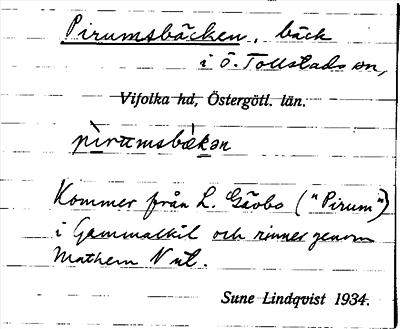 Pirumsbäcken, bäck
i Ö. Tollstads sn,
Vifolka hd, Östergötl. län.
pìrumsbä̀kən
Kommer från L. Gåsbo ("Pirum")
i Gammalkil och rinner genom
Mathem N ut.
Sune Lindqvist 1934.